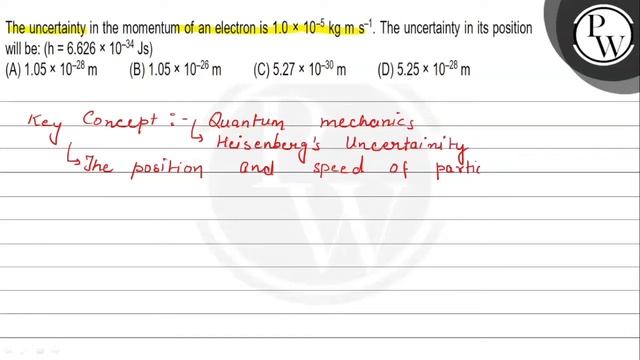 The uncertainty in the momentum of an electron is 1.0 × 10⁻⁵ kg m s⁻¹. The uncertainty in its position
will be: (h = 6.626 × 10⁻³⁴ Js)
(A) 1.05 × 10⁻²⁸ m (B) 1.05 × 10⁻²⁶ m (C) 5.27 × 10⁻³⁰ m (D) 5.25 × 10⁻²⁸ m
P
W
Key Concept :- Quantum mechanics
Heisenberg's Uncertainity
The position and speed of partic